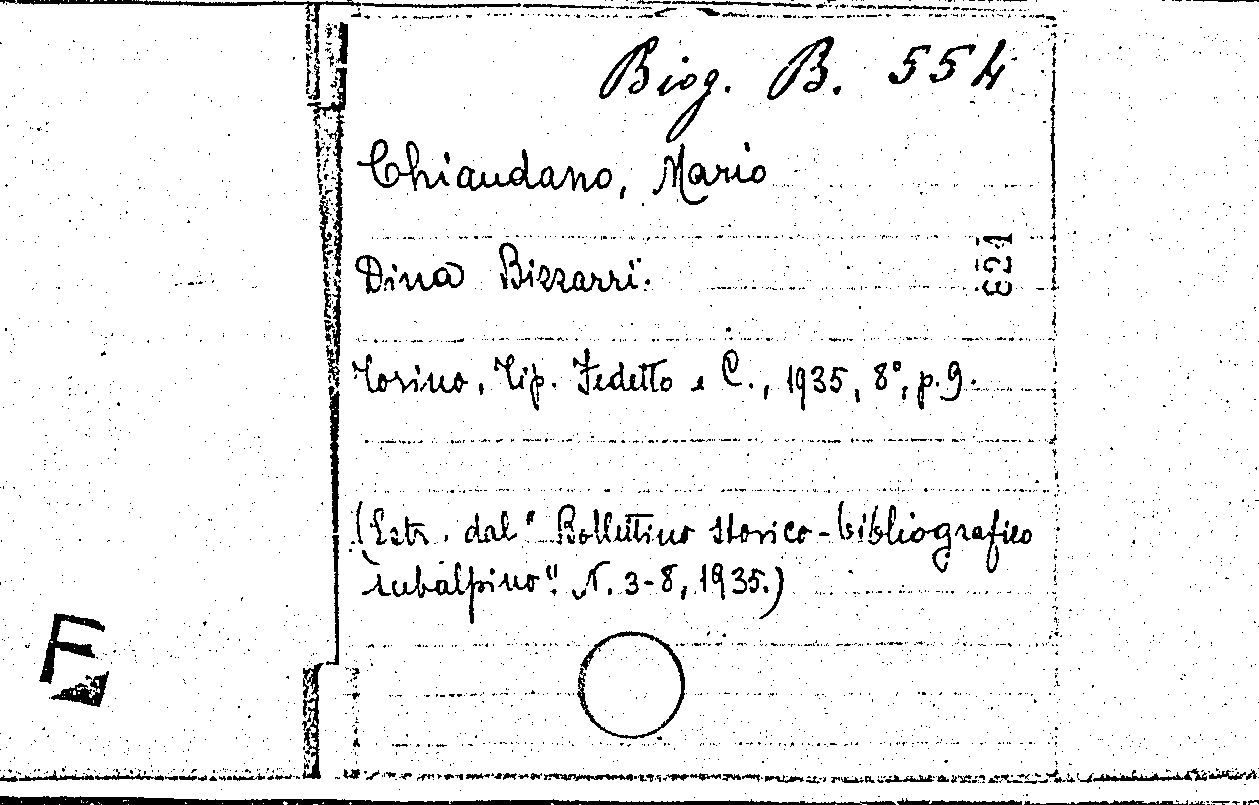 Biog. B. 554
Chiaudano, Mario
Dina Bizzarri.
621
Torino, Tip. Fedetto e C., 1935, 8°, p. 9.
(Estr. dal "Bollettino storico-bibliografico
subalpino". N. 3-8, 1935.)
F